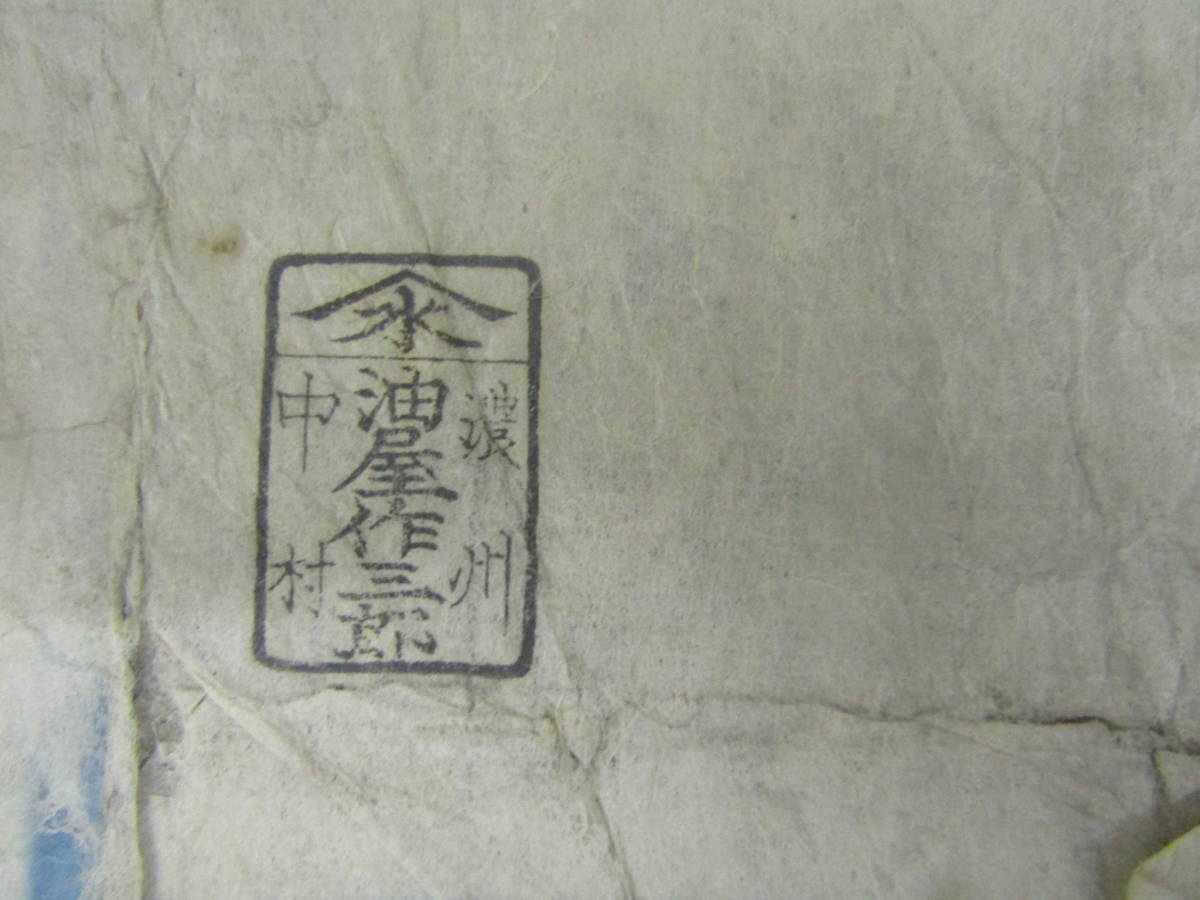 永
濃州
油屋作三郎
中村